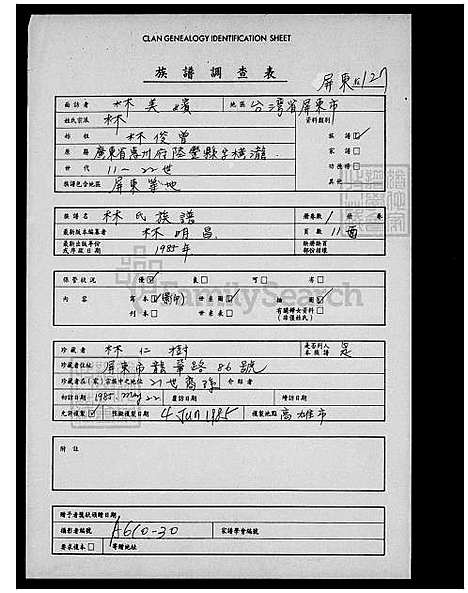 CLAN GENEALOGY IDENTIFICATION SHEET
族譜調查表
屏東 127
面訪者 林美 地區 台灣省屏東市
姓氏宗派 林 資料類別
始祖 林俊曾 族譜☑
原籍 廣東省惠州府陸豐縣 橫瀧. 家譜□
世代 11~22世 功德榜□
族譜包含地區 屏東等地 其他
族譜名 林氏族譜 冊卷數 1 冊 卷
最新版本編著者 林明昌 頁數 11面
最新出版年份或序跋日期 1985年 缺冊缺頁部份描標
保管狀況 優☑ 良□ 可□ 劣□
內容 寫本☑(影印) 世系圖☑ 插圖☑
刊本□ 世系表□ 有關婦女資料□(非僅姓氏)
FamilySearch
珍藏者 林仁樹 是否列入本族譜 是
珍藏者住址 屏東市龍華路86號
珍藏者在(家)宗族中之地位 21世裔孫 介紹者
初訪日期 1985. may 22 覆訪日期 續訪日期
允許複製☑ 預擬複製日期 4 Jun 1985 複製地點 高雄市
附註
贈予者獎狀頒贈日期
攝影者編號 A610-30 宗譜學會編號
要求複本□ 寄贈地址